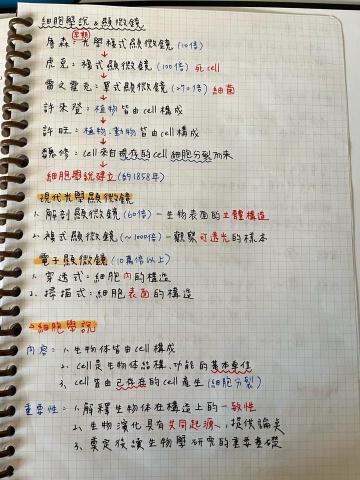 細胞學說 & 顯微鏡
早期
詹森：光學複式顯微鏡 (10倍)
虎克：複式顯微鏡 (100倍) 死cell
雷文霍克：單式顯微鏡 (270倍) 細菌
許來登：植物皆由cell構成
許旺：植物、動物皆由cell構成
魏修：cell來自現存的cell細胞分裂而來
細胞學說建立 (約1858年)
現代光學顯微鏡
1. 解剖顯微鏡 (60倍) - 生物表面的立體構造
2. 複式顯微鏡 (~1000倍) - 觀察可透光的標本
電子顯微鏡 (10萬倍以上)
1. 穿透式：細胞內的構造
2. 掃描式：細胞表面的構造
細胞學說
內容：1. 生物体皆由cell構成
2. cell是生物体結構、功能的基本單位
3. cell皆由已存在的cell產生 (細胞分裂)
重要性：1. 解釋生物体在構造上的一致性
2. 生物演化具有共同起源，提供論美
3. 奠定後讓生物學研究的重要基礎